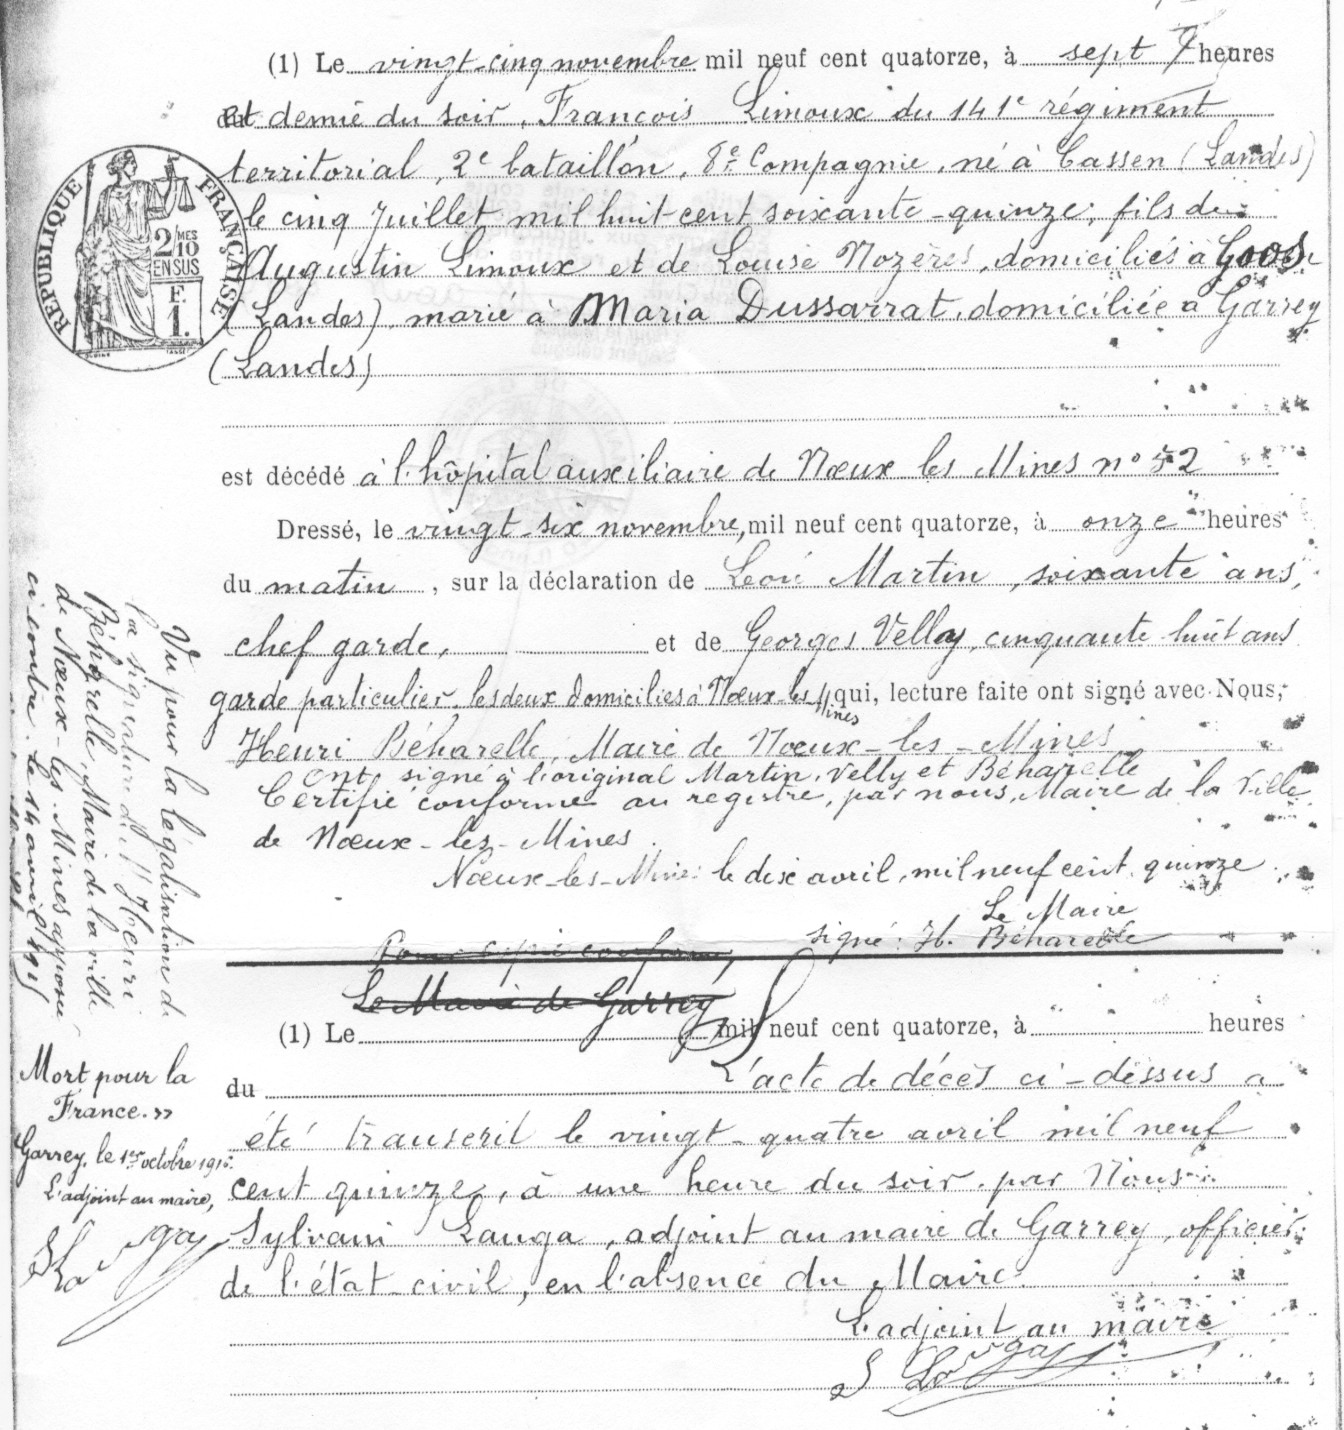 (1) Le vingt-cinq novembre mil neuf cent quatorze, à sept heures
et demie du soir, François Limoux du 141e régiment
territorial, 2e bataillon, 8e Compagnie, né à Cassen (Landes)
le cinq Juillet mil huit cent soixante-quinze, fils de
Augustin Limoux et de Louise Nozères, domiciliés à Goos
(Landes), marié à Maria Dussarrat, domiciliée à Garrey
(Landes)
REPUBLIQUE FRANÇAISE
2/10 MES
EN SUS
F.
1.
est décédé à l'hôpital auxiliaire de Nœux les Mines n° 52
Dressé, le vingt-six novembre, mil neuf cent quatorze, à onze heures
du matin, sur la déclaration de Léon Martin, soixante ans,
chef garde, et de Georges Velly, cinquante huit ans
garde particulier, les deux domiciliés à Nœux-les-Mines qui, lecture faite ont signé avec Nous,
Henri Béharelle, Maire de Nœux-les-Mines
Ont signé à l'original Martin, Velly et Béharelle
Certifié conforme au registre, par nous, Maire de la Ville
de Nœux-les-Mines.
Nœux-les-Mines le dix avril, mil neuf cent quinze
Le Maire
signé: H. Béharelle
Pour copie conforme,
Le Maire de Garrey
Vu pour la légalisation de
la signature de Mr Henri
Béharelle, Maire de la ville
de Nœux-les-Mines apposée
ci contre. le 14 avril 1915
(1) Le mil neuf cent quatorze, à heures
du L'acte de décès ci-dessus a
été transcrit le vingt-quatre avril mil neuf
cent quinze, à une heure du soir, par Nous
Sylvain Lauga, adjoint au maire de Garrey, officier
de l'état-civil, en l'absence du Maire.
L'adjoint au maire
S Lauga
Mort pour la
France. »
Garrey, le 1er octobre
L'adjoint au maire,
S Lauga